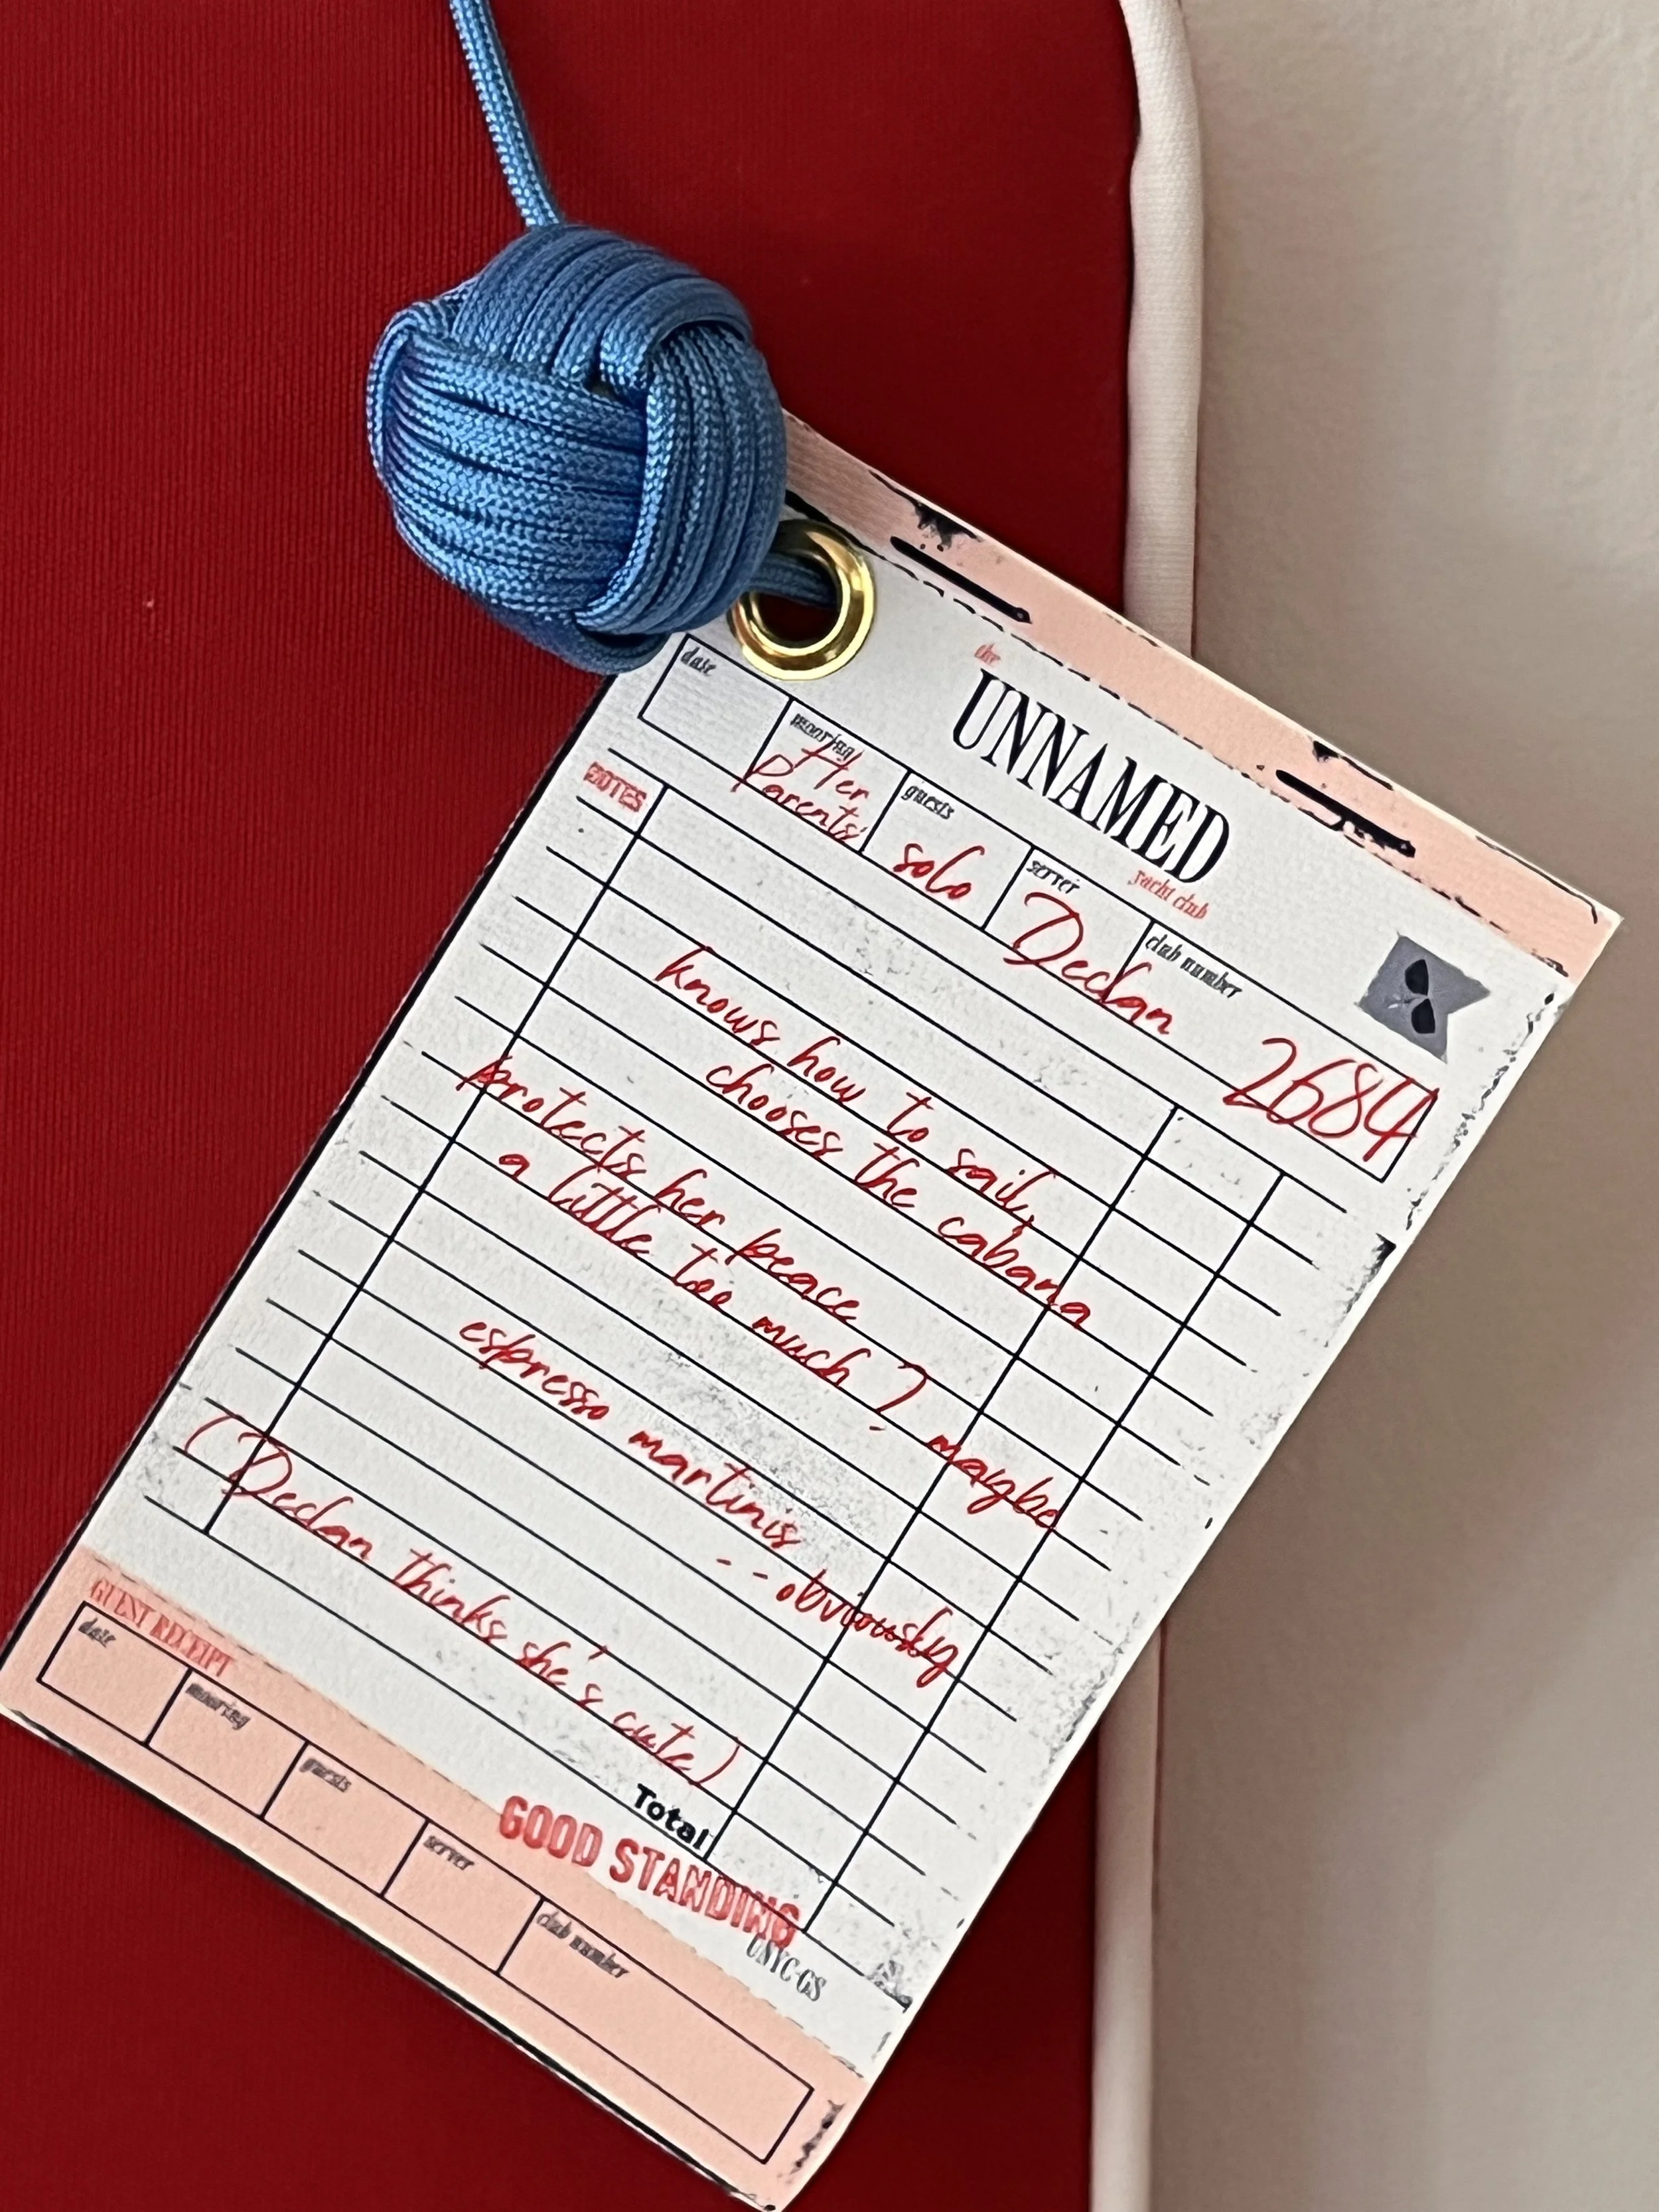 the
UNNAMED
yacht club
date
mooring
Her
Parents'
guests
solo
server
Declan
club number
2684
NOTES
knows how to sail,
chooses the cabana
protects her peace
a little too much? maybe
espresso martinis
-- obviously
(Declan thinks she's cute)
Total
GOOD STANDING
UNYC-GS
GUEST RECEIPT
date
mooring
guests
server
club number